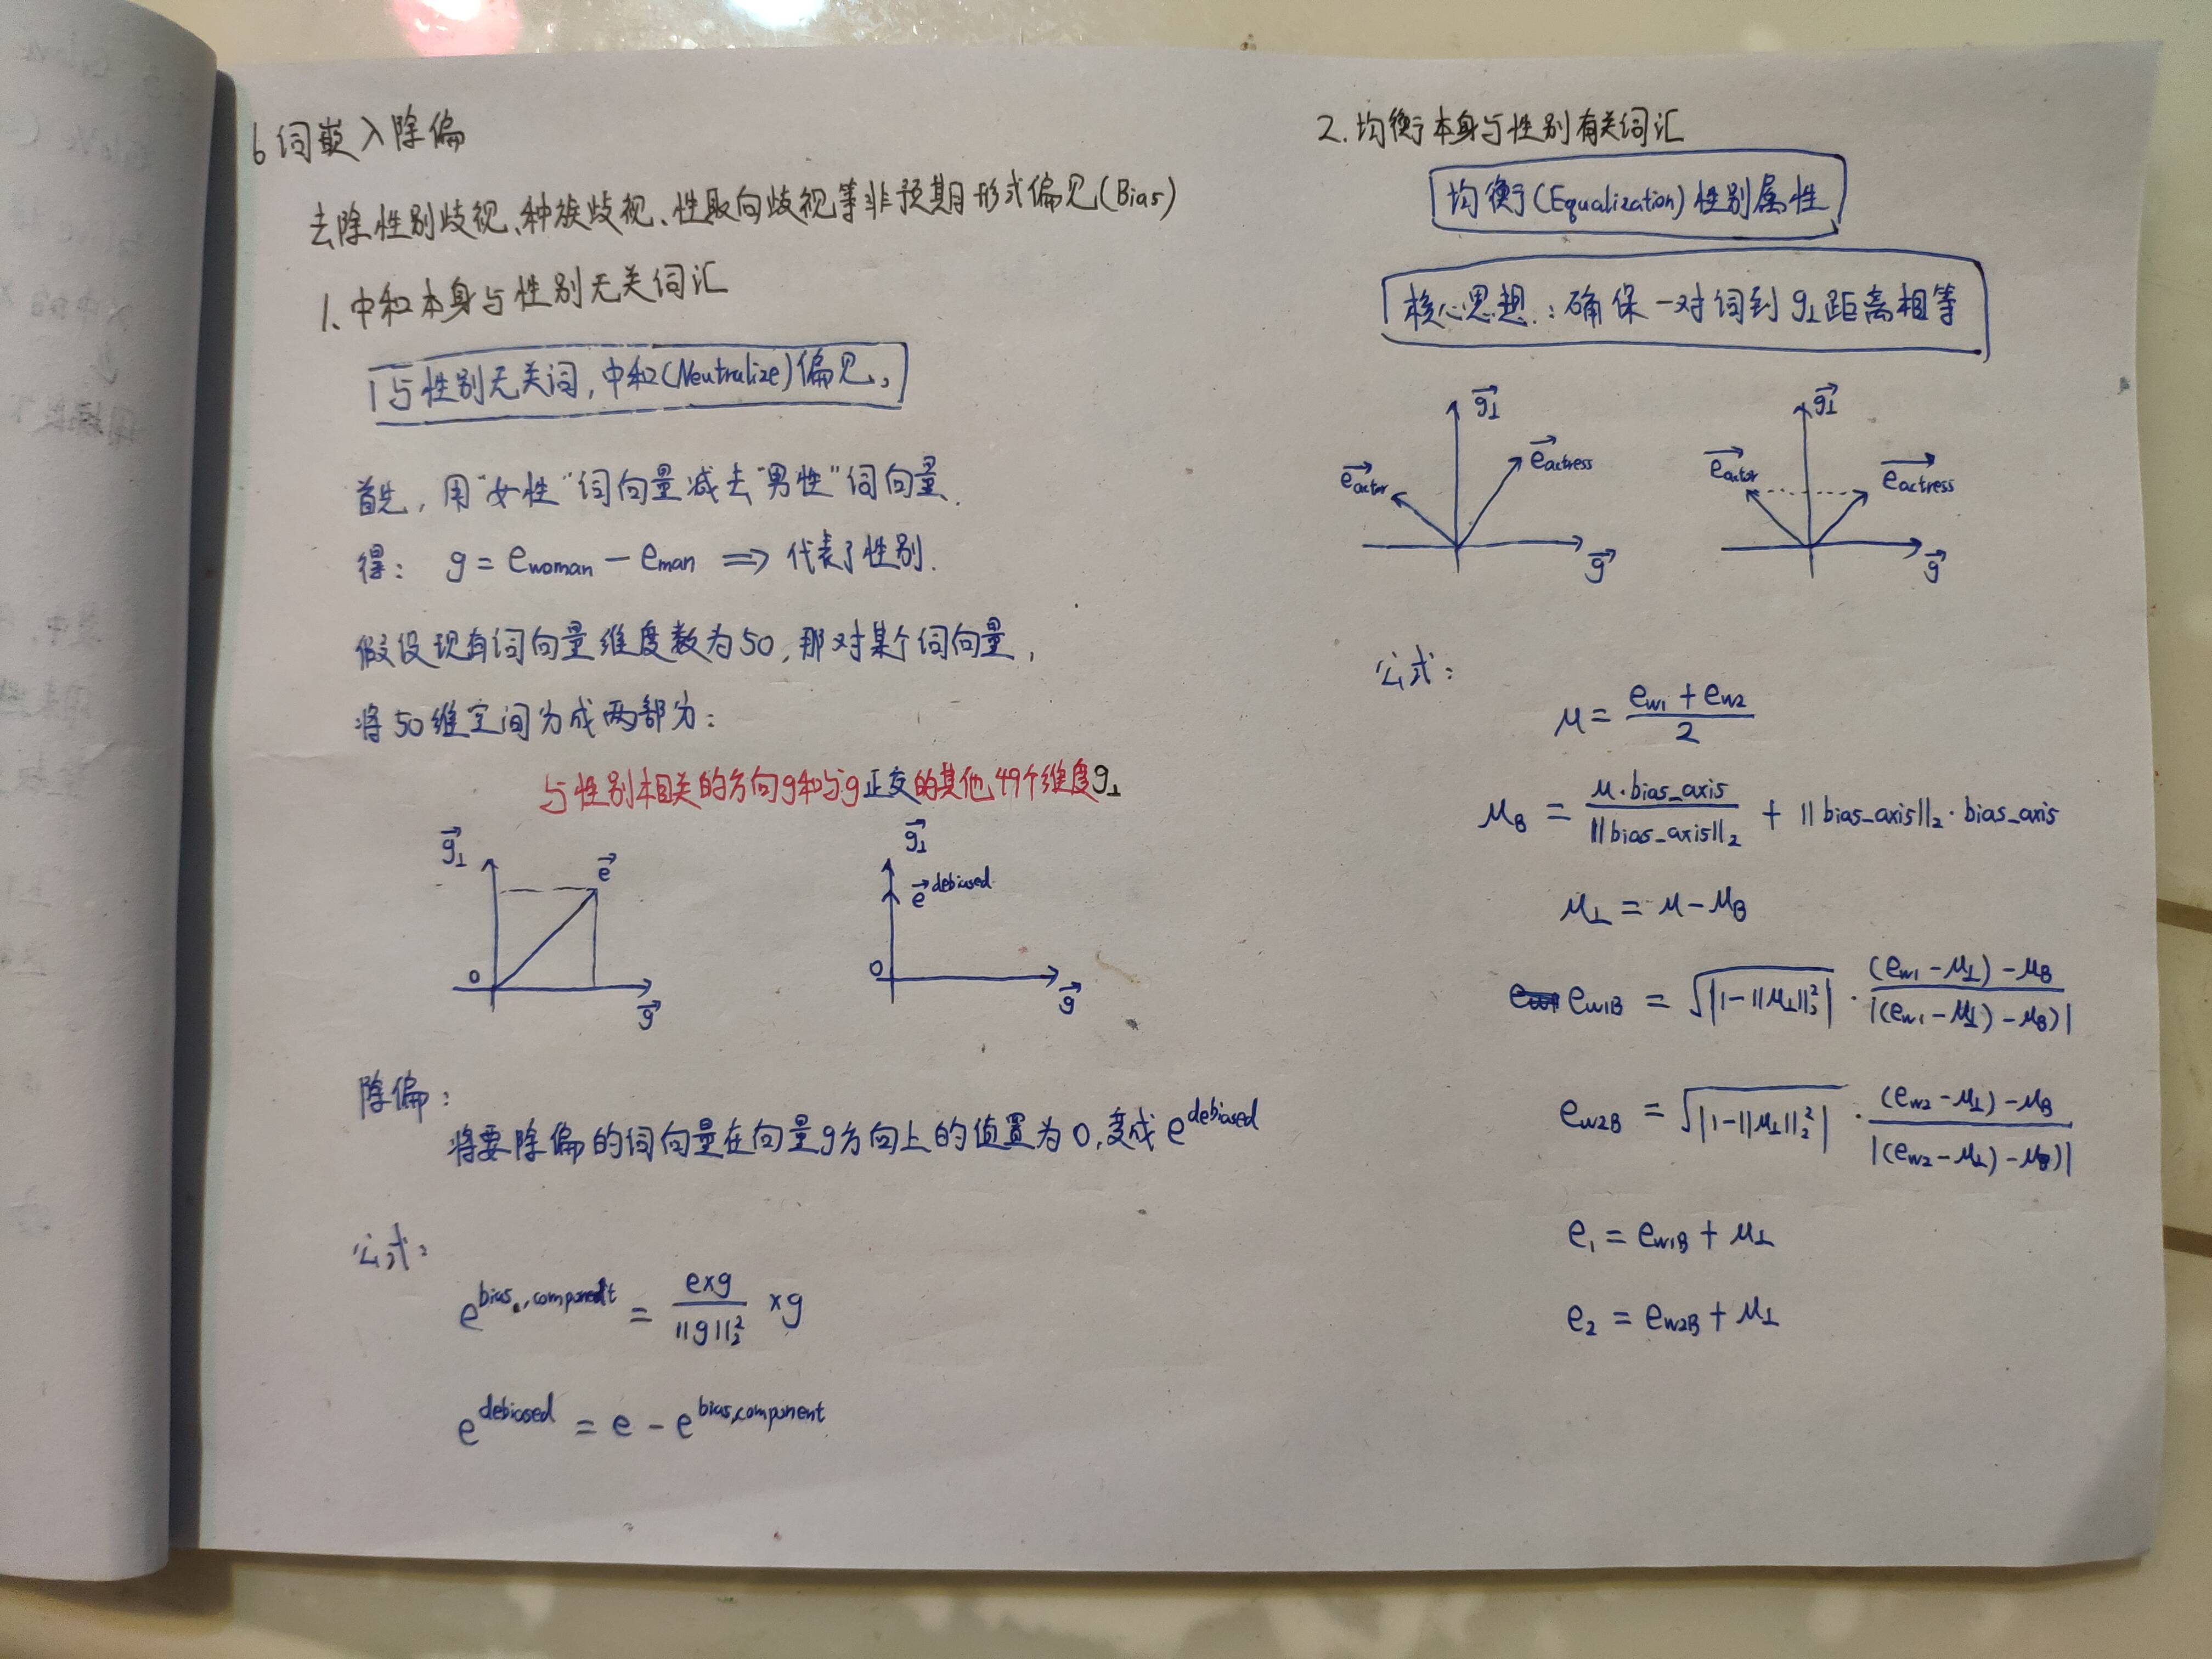 6 词嵌入除偏
去除性别歧视、种族歧视、性取向歧视等非预期形式偏见(Bias)
1、中和本身与性别无关词汇
与性别无关词,中和(Neutralize)偏见,
首先,用"女性"词向量减去"男性"词向量.
得: g = e_woman − e_man ⟹ 代表了性别.
假设现有词向量维度数为50,那对某个词向量,
将50维空间分成两部分:
与性别相关的方向g和与g正交的其他49个维度g⊥
g⊥ e 0 g
g⊥ e^debiased 0 g
除偏:
将要除偏的词向量在向量g方向上的值置为0,变成e^debiased
公式:
e^bias,component = (e×g)/||g||₂² ×g
e^debiased = e − e^bias,component
2.均衡本身与性别有关词汇
均衡(Equalization)性别属性
核心思想:确保一对词到g⊥距离相等
g⊥ e_actor e_actress g
g⊥ e_actor e_actress g
公式:
μ = (e_w1 + e_w2)/2
μ_B = (μ·bias_axis)/||bias_axis||₂ + ||bias_axis||₂·bias_axis
μ⊥ = μ − μ_B
e_w1B = √|1−||μ⊥||₂²| · ((e_w1 − μ⊥) − μ_B)/|(e_w1 − μ⊥) − μ_B)|
e_w2B = √|1−||μ⊥||₂²| · ((e_w2 − μ⊥) − μ_B)/|(e_w2 − μ⊥) − μ_B)|
e₁ = e_w1B + μ⊥
e₂ = e_w2B + μ⊥